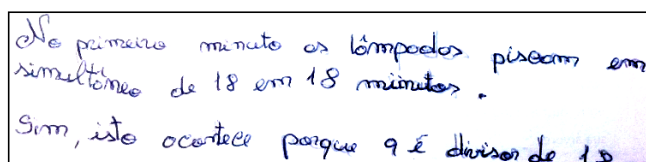 No primeiro minuto as lâmpadas piscam em
simultâneo de 18 em 18 minutos.
Sim, isto acontece porque 9 é divisor de 18